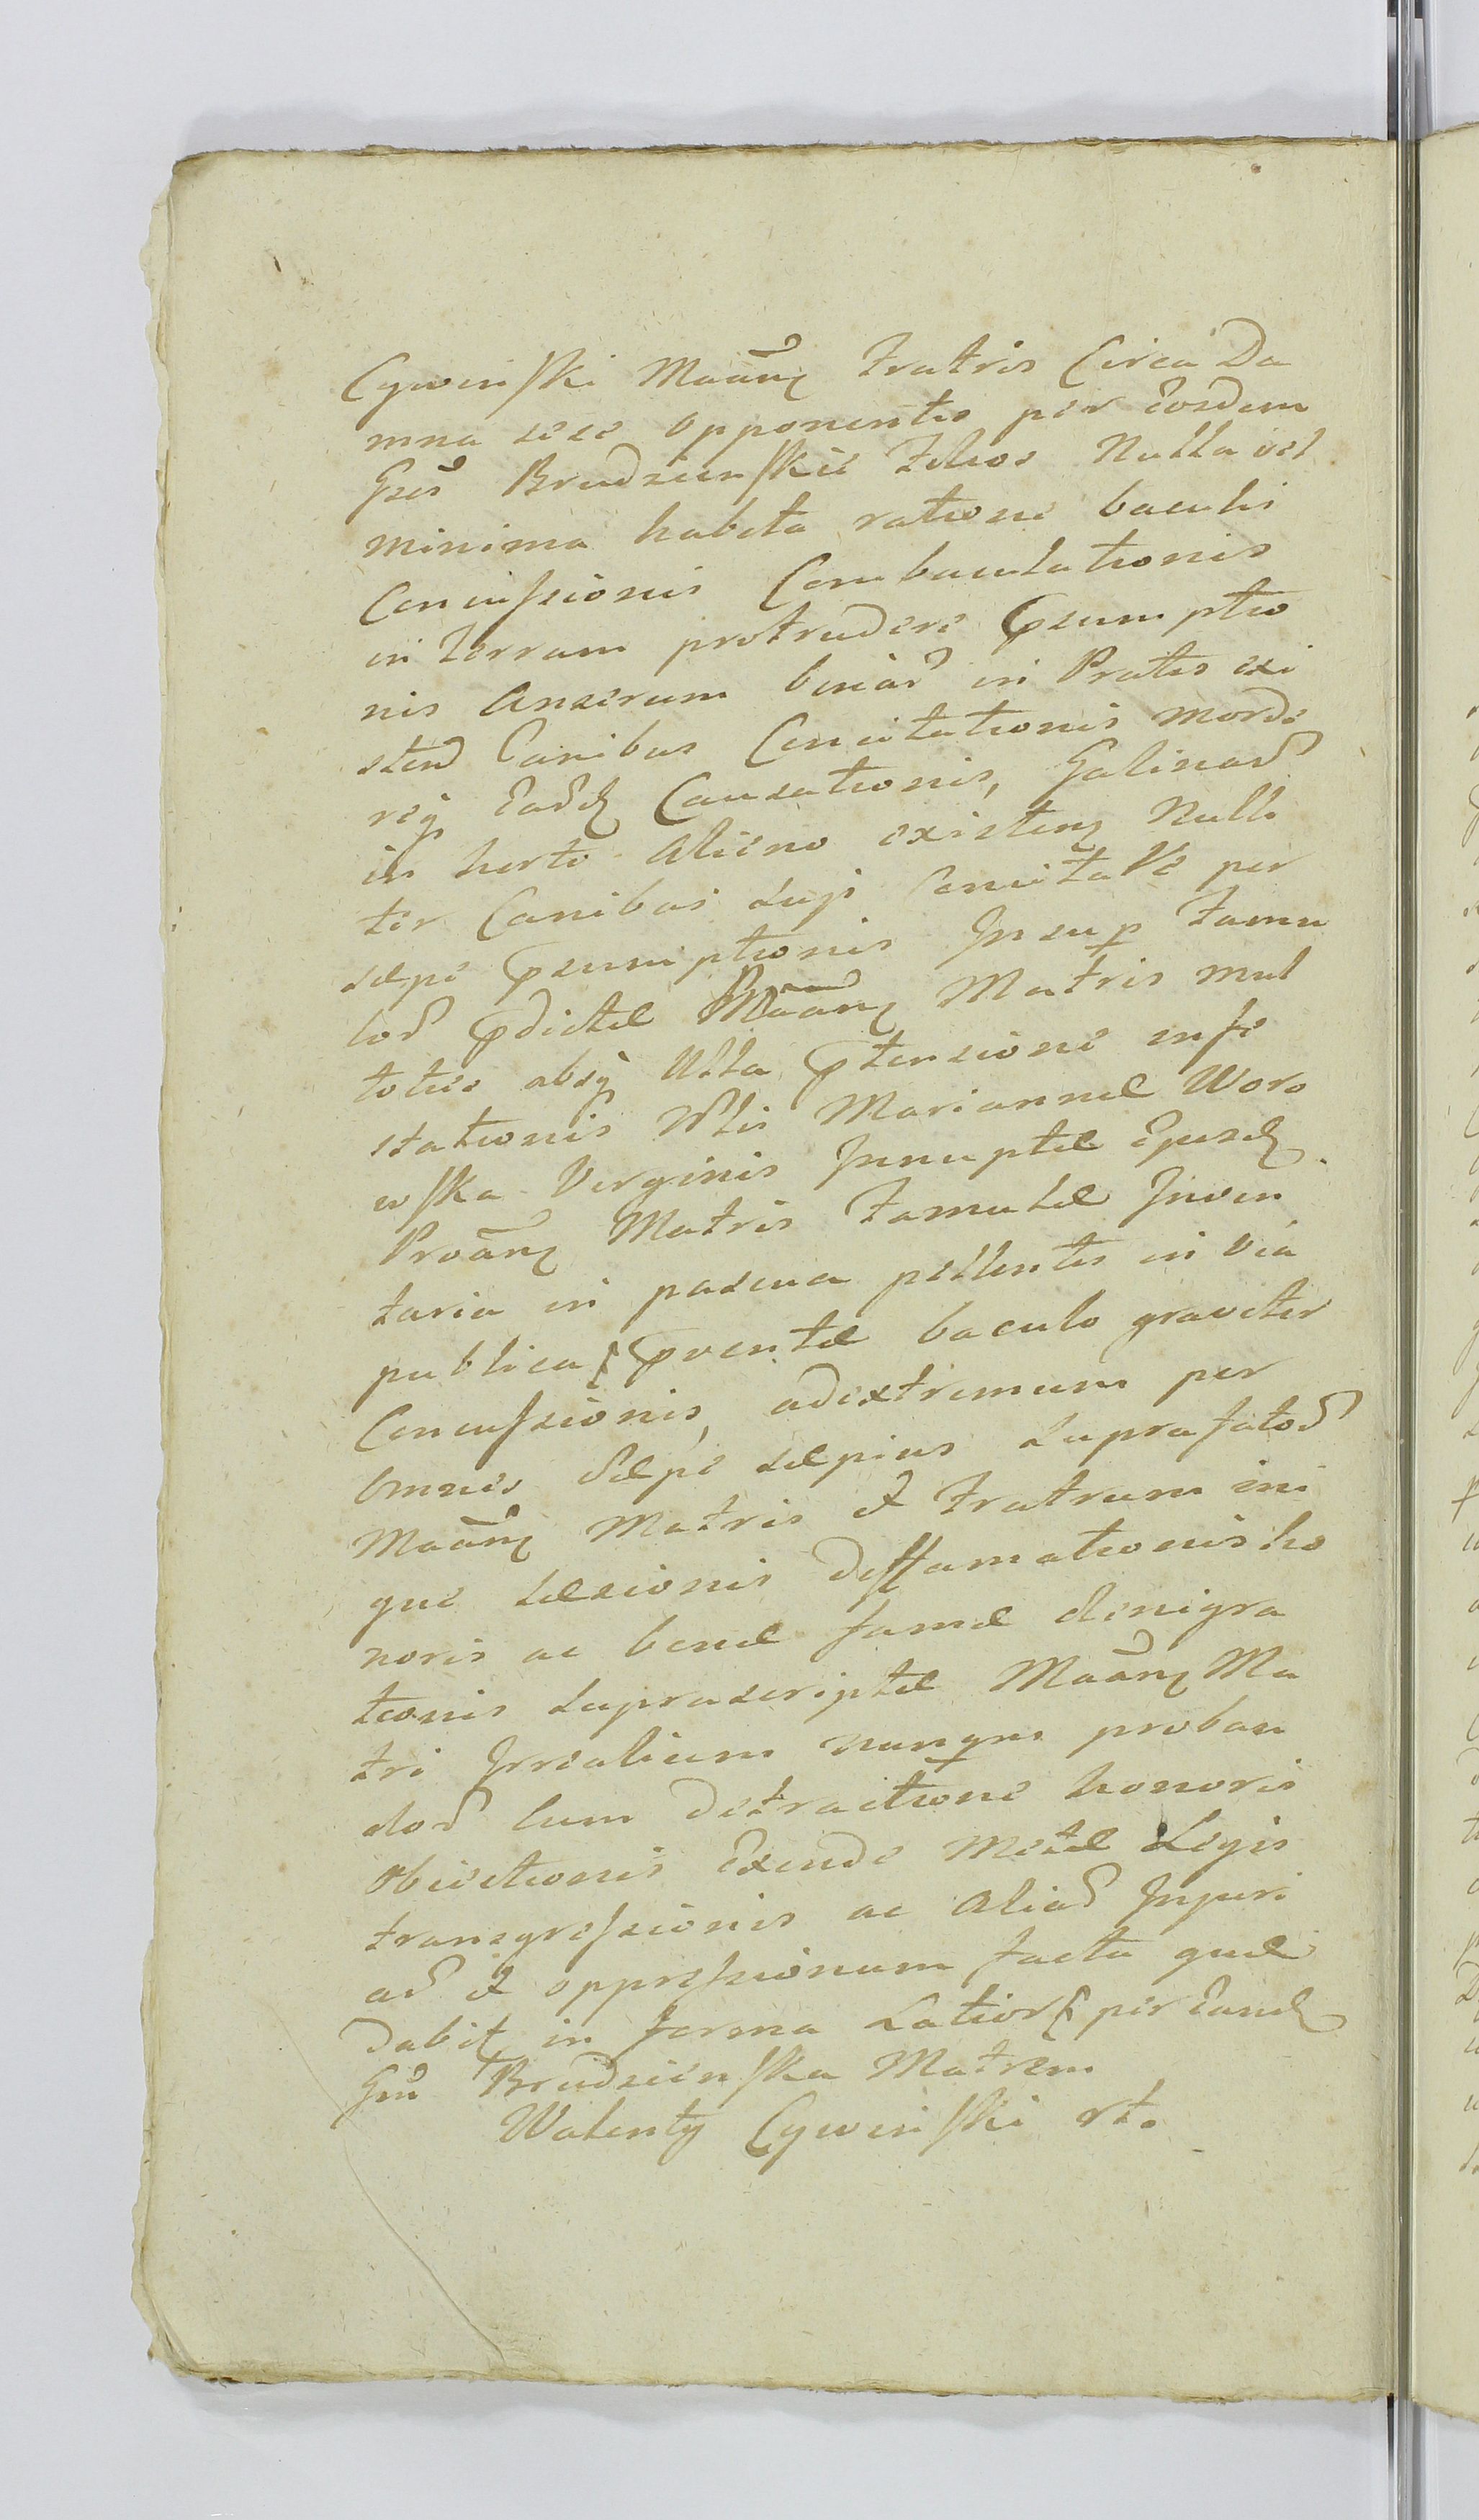 Cywinski Maãnę Fratris Circa Da
mna sese opponentis per Eosdem
Gsos Brudzinskie Filios Nulla vel
minima habita ratione baculi
Concussionis Combaculationis
in terram protrudere psumptio
nis Anserum binar in Pratis exi
sten Canibus Concitationis morde
reqz Eardę Causationis, Galinar
in horto alieno existenę Nulli
ter Canibus sugi Concitare per
sæpe psumptionis Insup Famu
lor pdictæ Maãnę Matris mul
toties absqz Ulla ptensione infe
stationis Nlis Mariannæ Woro
wska Virginis Innuptæ Ejusdę
Proãnę Matris Famulæ Inven
taria in pascua pellentis in via
publica pventæ baculo graviter
Concussionis, adextremum per
Omnes Sæpe sæpius suprafator
Maãnę Matris et Fratrum ini
que Læsionis deffamationis ho
noris ac benæ famæ denigra
tionis suprascriptæ Maãnę Ma
tri Irrealium nunqm proban
dor Cum detractione honoris
Obiectionis Exinde Metæ Legis
transgressionis ac aliar Injuri
ar et oppressionum facta quæ
dabit in forma Latiori per Eandę
Gm Brudzienska Matrem
Walenty Cywinski rt.